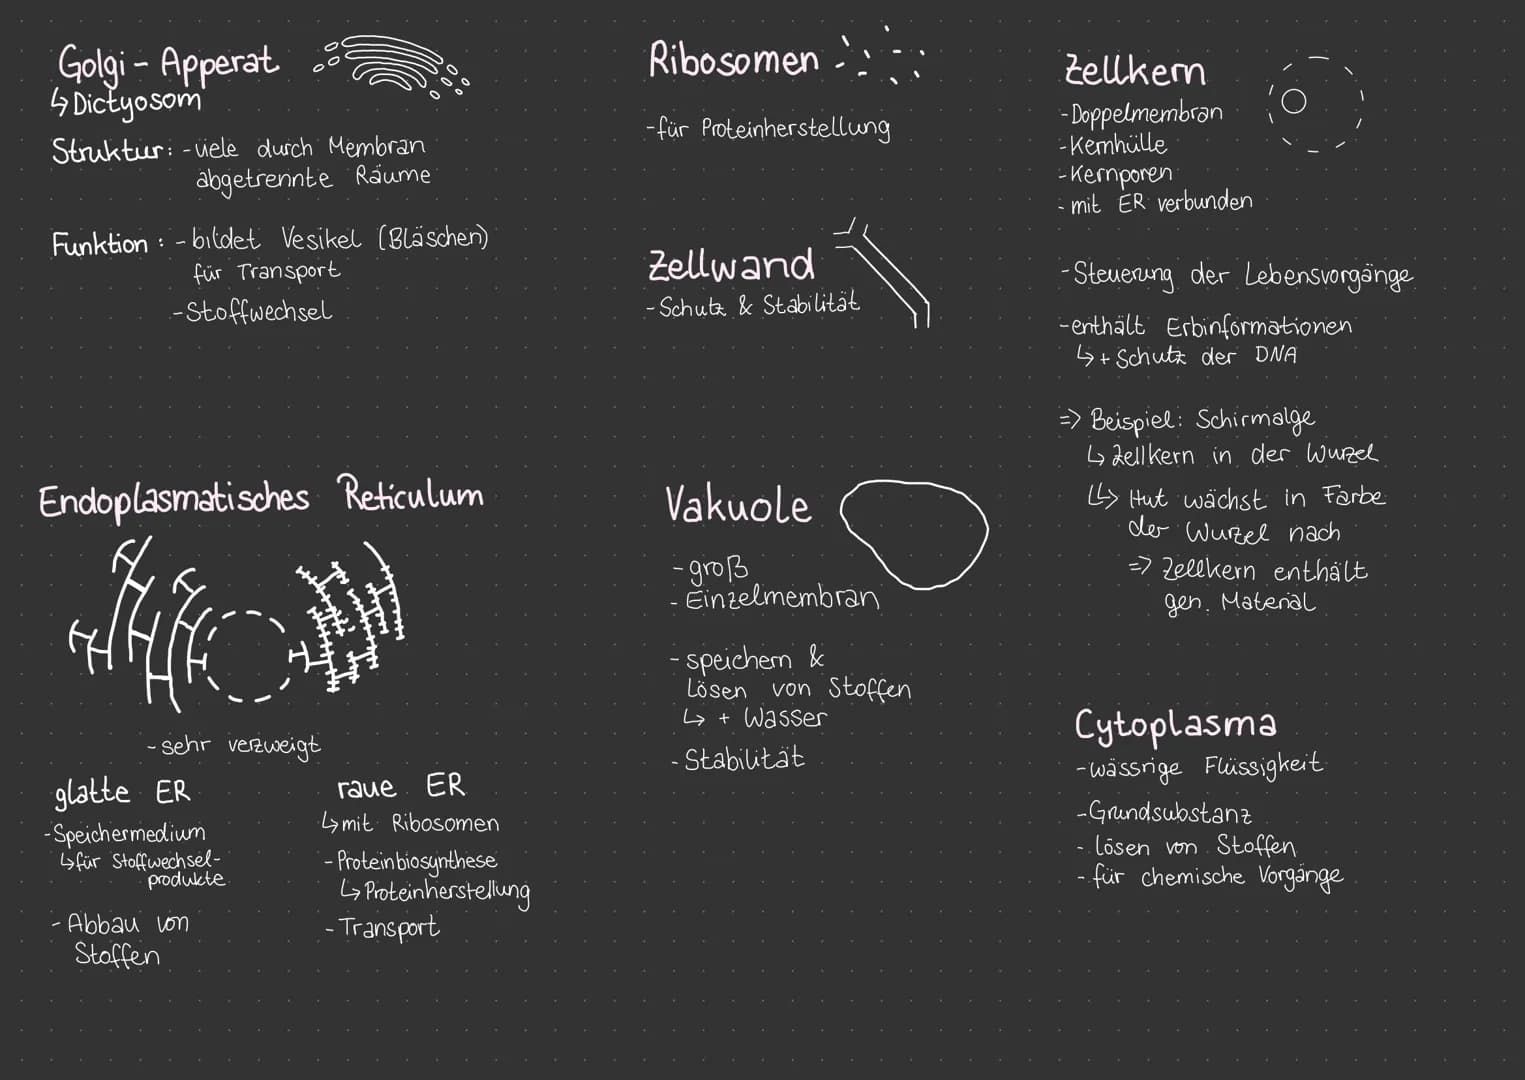 Golgi - Apperat
↳ Dictyosom
Struktur: - viele durch Membran
abgetrennte Räume
Funktion : - bildet Vesikel (Bläschen)
für Transport
- Stoffwechsel
Endoplasmatisches Reticulum
- sehr verzweigt
glatte ER
- Speichermedium
↳ für Stoffwechsel-
produkte
- Abbau von
Stoffen
raue ER
↳ mit Ribosomen
- Proteinbiosynthese
↳ Proteinherstellung
- Transport
Ribosomen
- für Proteinherstellung
Zellwand
- Schutz & Stabilität
Vakuole
- groß
- Einzelmembran
- speichern &
lösen von Stoffen
↳ + Wasser
- Stabilität
Zellkern
- Doppelmembran
- Kernhülle
- Kernporen
- mit ER verbunden
- Steuerung der Lebensvorgänge
- enthält Erbinformationen
↳ + Schutz der DNA
=> Beispiel: Schirmalge
↳ Zellkern in der Wurzel
↳ Hut wächst in Farbe
der Wurzel nach
=> Zellkern enthält
gen. Material
Cytoplasma
- wässrige Flüssigkeit
- Grundsubstanz
- lösen von Stoffen
- für chemische Vorgänge